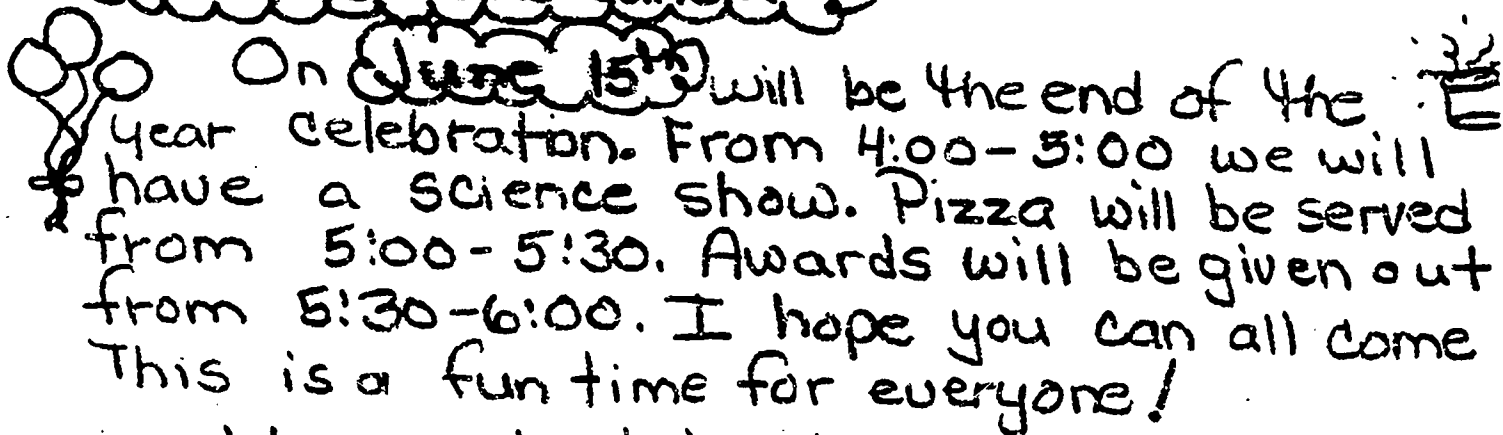 On June 15th will be the end of the
year celebration. From 4:00-5:00 we will
have a science show. Pizza will be served
from 5:00-5:30. Awards will be given out
from 5:30-6:00. I hope you can all come
This is a fun time for everyone!